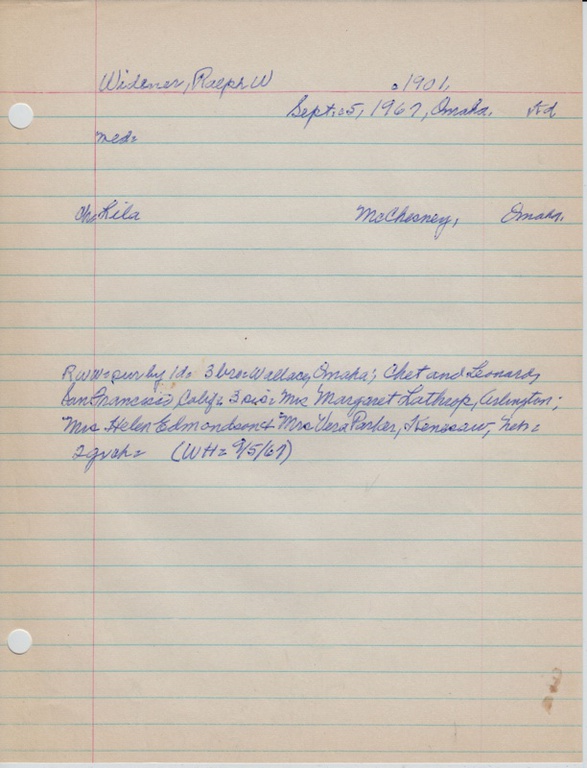 Widener, Ralph W c1901,
Sept. 5, 1967, Omaha. Ad
med=
Ch= Lila McChesney, Omaha.
RWW= sur by 1d= 3 bro= Wallace, Omaha; Chet and Leonard,
San Francisco, Calif= 3 sis= Mrs Margaret Lathrop, Arlington;
Mrs Helen Edmondson & Mrs Vera Parker, Kenesaw, Neb=
2 gr ch= (WH= 9/5/67)